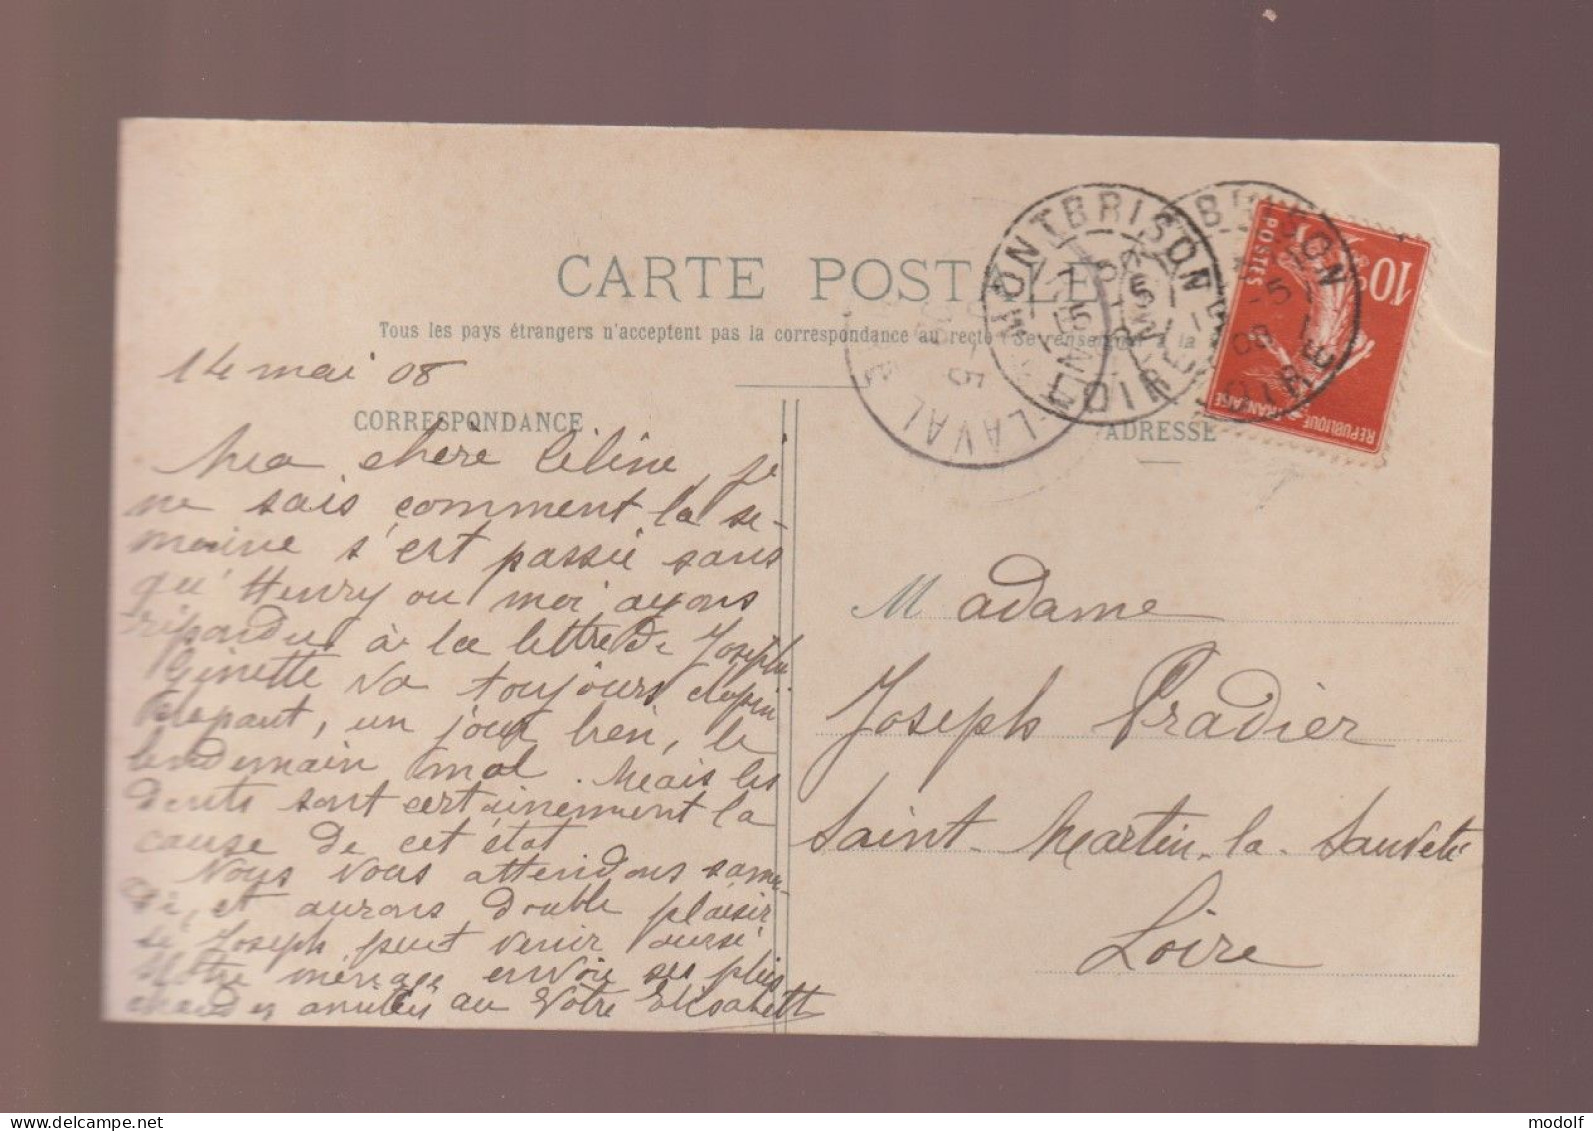 CARTE POSTALE
Tous les pays étrangers n'acceptent pas la correspondance au recto (Se renseigner à la
14 mai 08
CORRESPONDANCE
Ma chère Liline, je
ne sais comment la se-
maine s'est passée sans
qu'Henry ou moi ayons
répondu à la lettre de Joseph
Ginette va toujours clopin
clopant, un jour bien, le
lendemain mal. Mais les
dents sont certainement la
cause de cet état
Nous vous attendons same-
di, et aurons double plaisir
si Joseph peut venir aussi
Notre ménage envoie ses plus
chaudes amitiés au Vôtre Elisabeth
ADRESSE
Madame
Joseph Pradier
Saint-Martin-la-Sauveté
Loire
MONTBRISON
LOIRE
MONTBRISON
LOIRE
LAVAL
10c
POSTES
REPUBLIQUE FRANÇAISE
delcampe.net
modolf